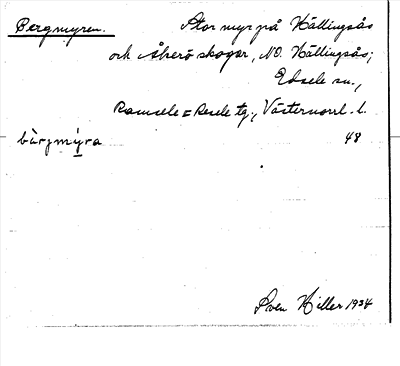 Bergmyren. Stor myr på Hällingsås
och Åkerö skogar, NO. Hällingsås;
Edsele sn.,
Ramsele = Resele tg, Västernorrl. l.
bàrjmýra 48
Sven Hiller 1934